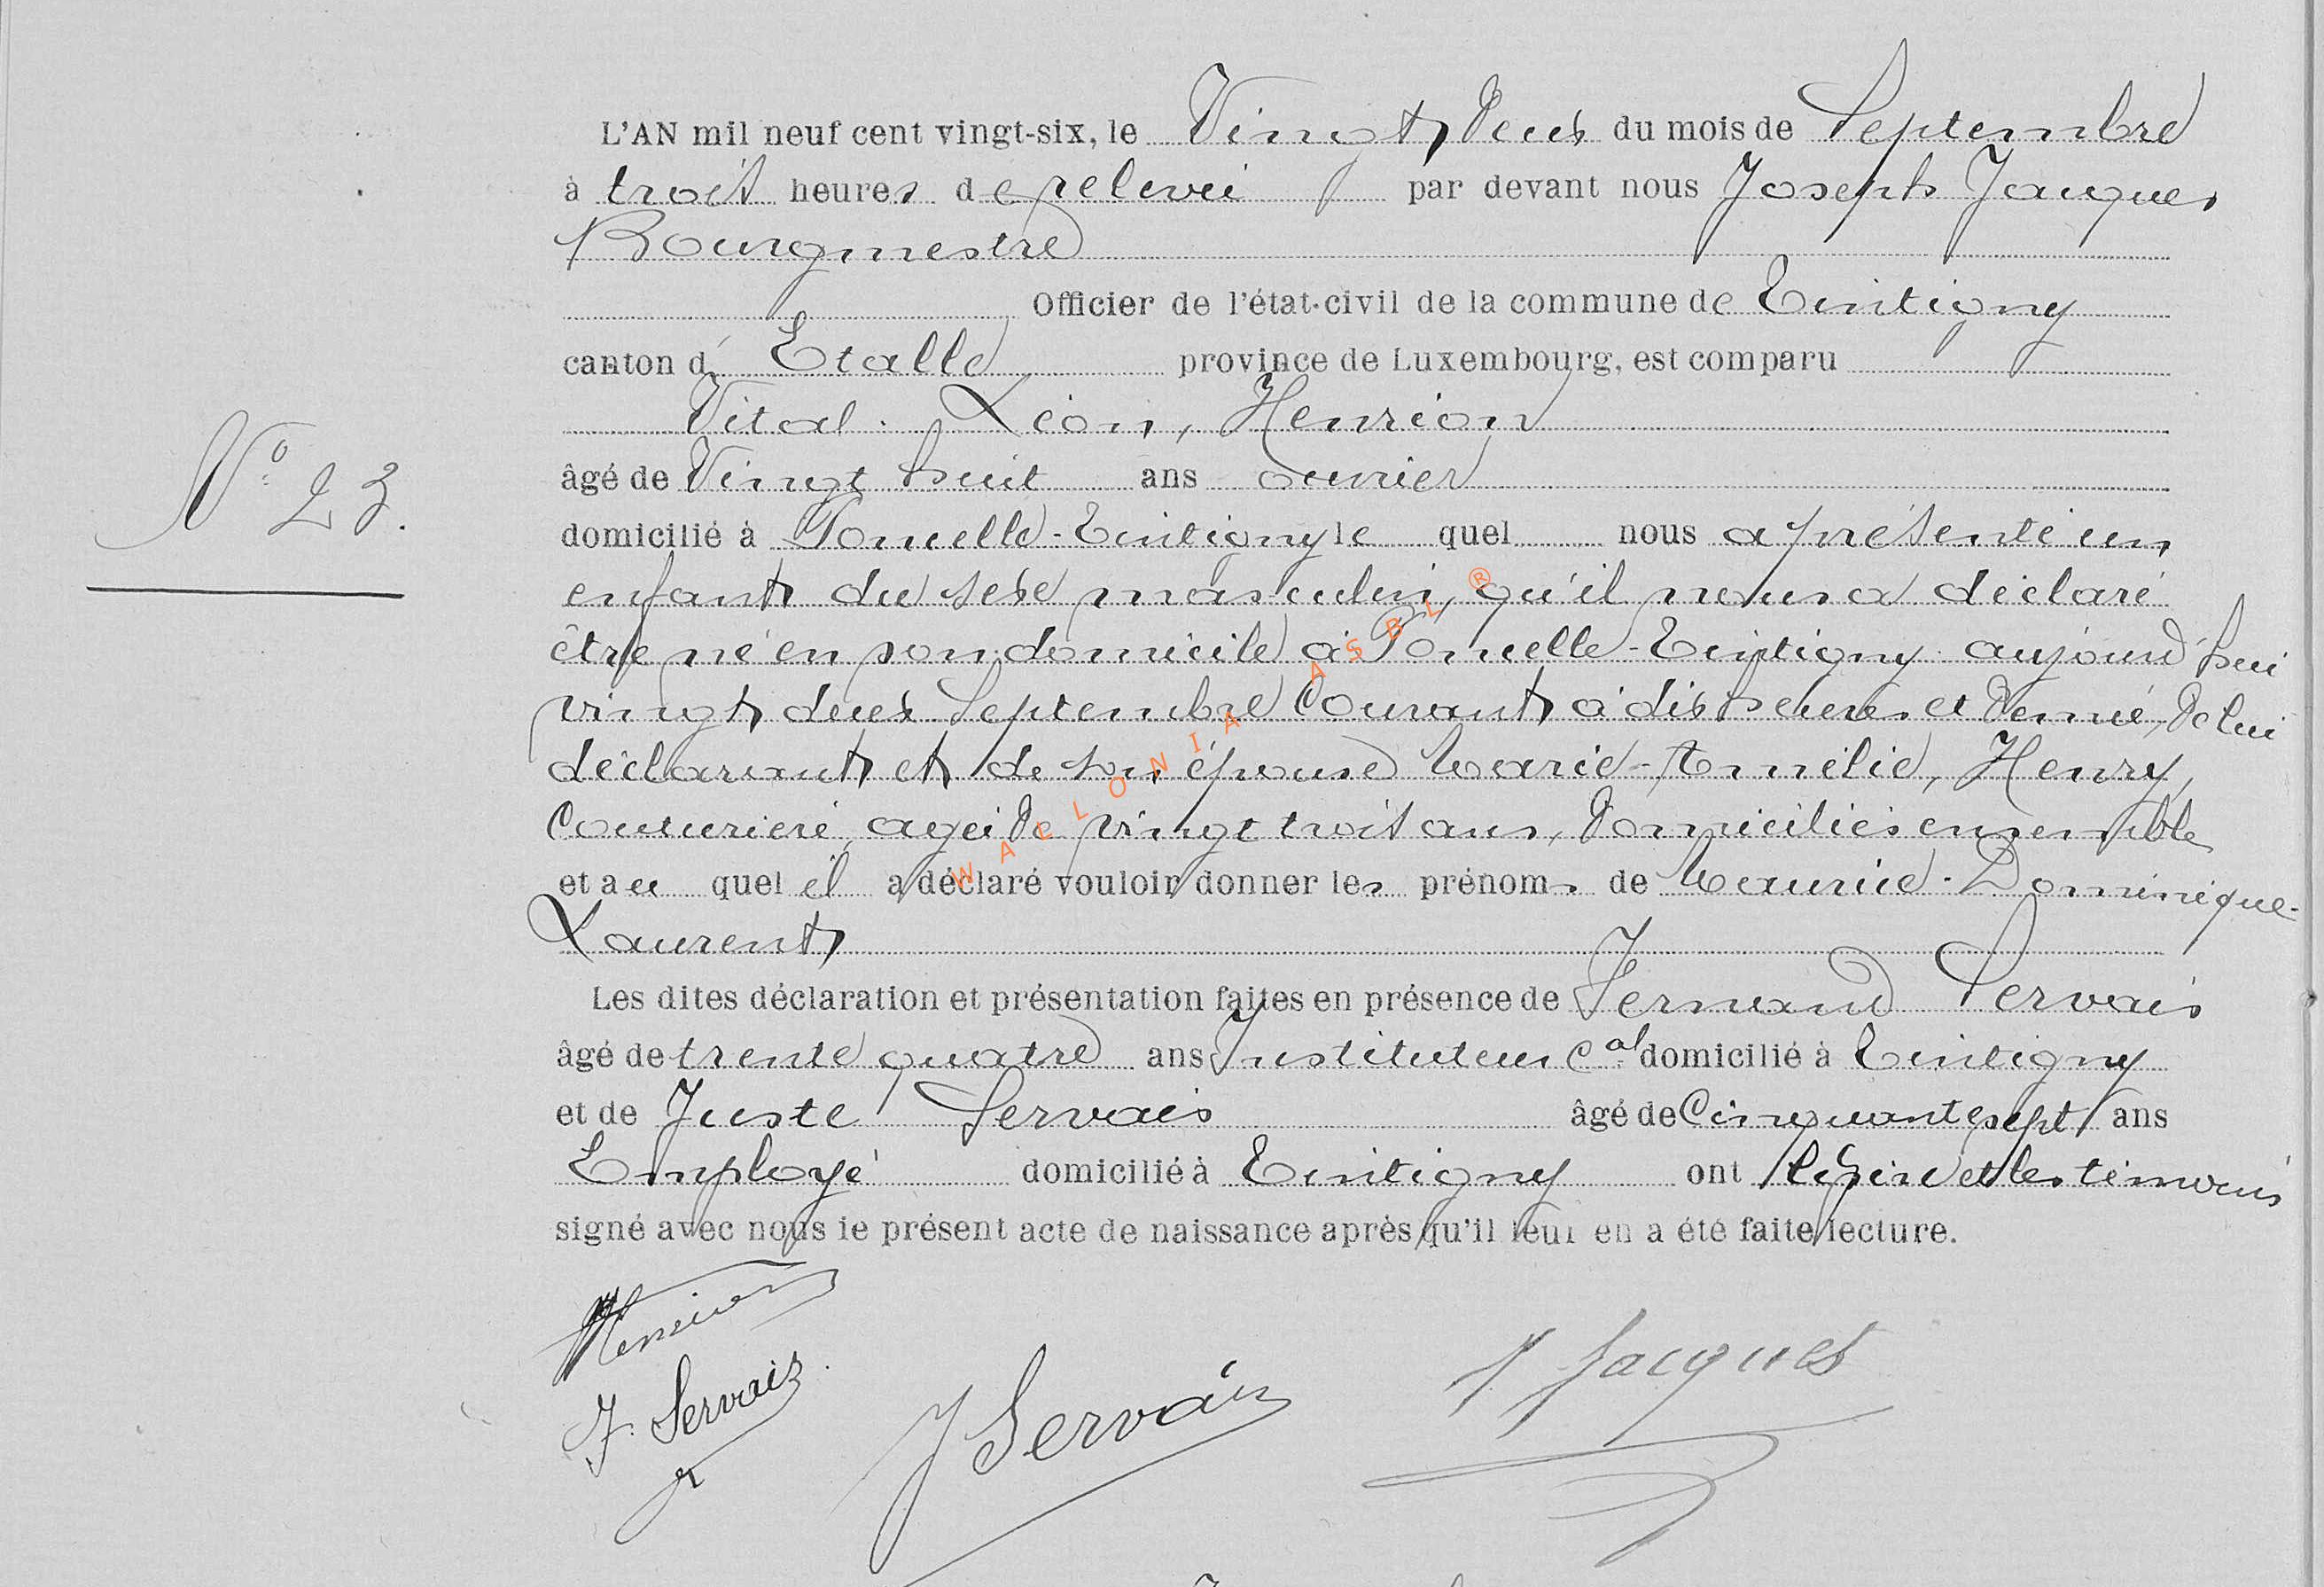 L'AN mil neuf cent vingt-six, le Vingt deux du mois de Septembre
à trois heures de relevée par devant nous Joseph Jacques
Bourgmestre
Officier de l'état-civil de la commune de Tintigny
canton d' Etalle province de Luxembourg, est comparu
Vital. Léon, Henrion
N° 23.
âgé de Vingt huit ans ouvrier
domicilié à Poncelle-Tintigny le quel nous a présenté un
enfant du sexe masculin, qu'il nous a déclaré
être né en son domicile à Poncelle-Tintigny aujourd'hui
vingt deux Septembre Courant à dix heures et demie, de lui
déclarant et de son épouse Marie-Amélie, Henry,
Couturière, agée de vingt trois ans, domiciliés ensemble
et au quel il a déclaré vouloir donner les prénoms de Maurice-Dominique-
Laurent
Les dites déclaration et présentation faites en présence de Fernand Servais
âgé de trente quatre ans Instituteur Cal domicilié à Tintigny
et de Juste Servais âgé de Cinquante sept ans
Employé domicilié à Tintigny ont le père et les témoins
signé avec nous le présent acte de naissance après qu'il leur en a été faite lecture.
Henrion
F. Servais
J Servais
J Jacques
WALLONIA ASBL ®